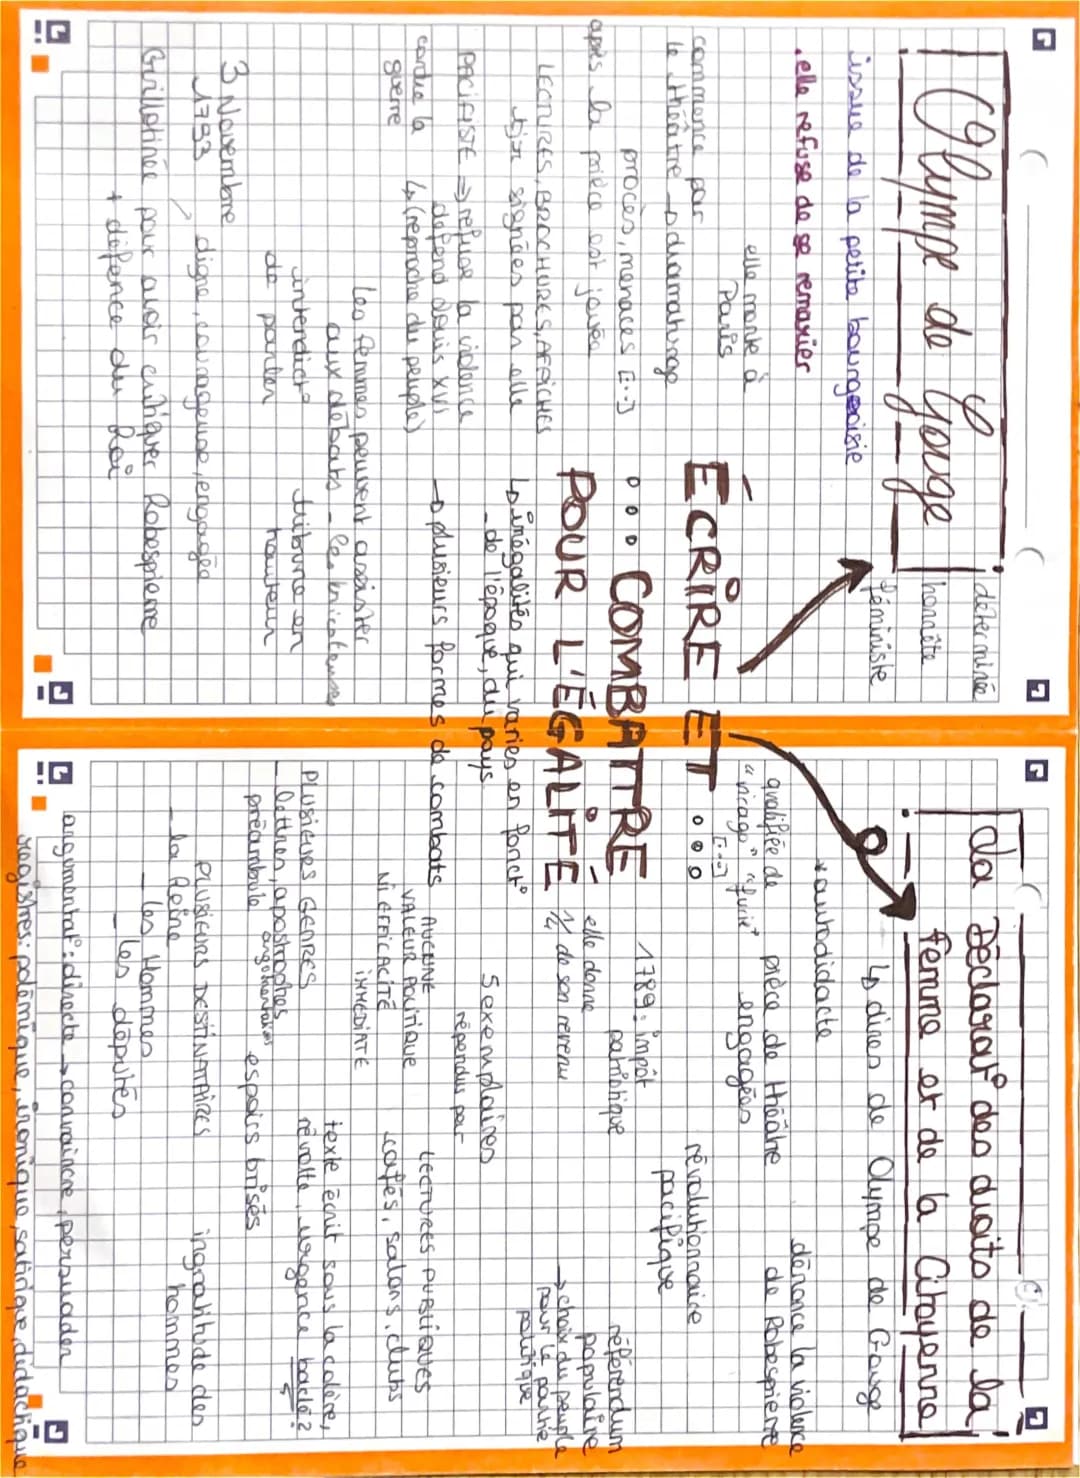 Olympe de Gouge
déterminée
honnête
féministe
issue de la petite bourgeoisie
.elle refuse de se remarier
elle monte à
Paris
commence par
le théâtre → dramaturge
procès, menaces [...]
après la pièce est jouée
LECTURES, BROCHURES, AFFICHES
tjr signées par elle
PACIFISTE ⇒ refuse la violence
défend Louis XVI
↳ (reproche du peuple)
contre la
guerre
Les femmes peuvent assister
aux débats - les tricoteuses
interdict°
de parler
tribune en
hauteur
3 Novembre
1793
digne, courageuse, engagée
Guillotinée pour avoir critiquer Robespierre
+ défence du Roi
ÉCRIRE ET ...
... COMBATTRE
POUR L'ÉGALITÉ
↳ inégalités qui varies en fonct°
- de l'époque, du pays.
→ plusieurs formes de combats
La Déclarat° des droits de la
femme et de la Citoyenne
↳ dires de Olympe de Gouge
*autodidacte
dénonce la violence
de Robespierre
qualifiée de
"virago" "furie"
[...]
pièce de théâtre
engagées
révolutionnaire
pacifique
1789 : impôt
patriotique
elle donne
1/4 de son revenu
référendum
populaire
→ choix du peuple
pour la partie
politique
5 exemplaires
répendus par
LECTURES PUBLIQUES
cafés, salons, clubs
AUCUNE
VALEUR POLITIQUE
NI EFFICACITÉ
IMMÉDIATE
texte écrit sous la colère,
révolte, urgence bâclé?
PLUSIEURS GENRES
lettres, apostrophes
préambule
espoirs brisés
PLUSIEURS DESTINATAIRES
- la Reine
- les Hommes
- les députés
ingratitude des
hommes
argumentat° : directe → convaincre, persuader
registres : polémique, ironique, satirique, didactique